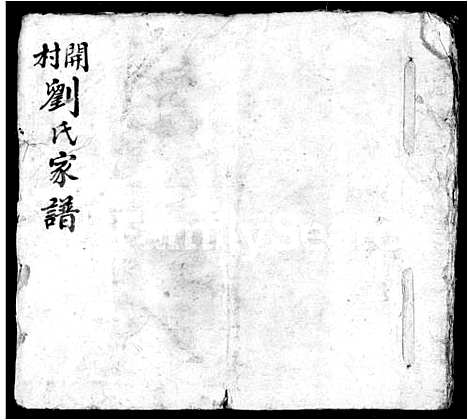 開村
劉氏家譜
FamilySearch